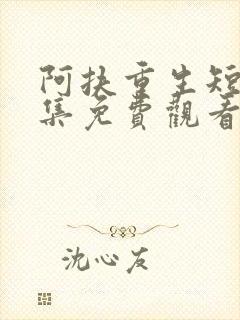 阿扶重生短
集免費觀看
沈心友